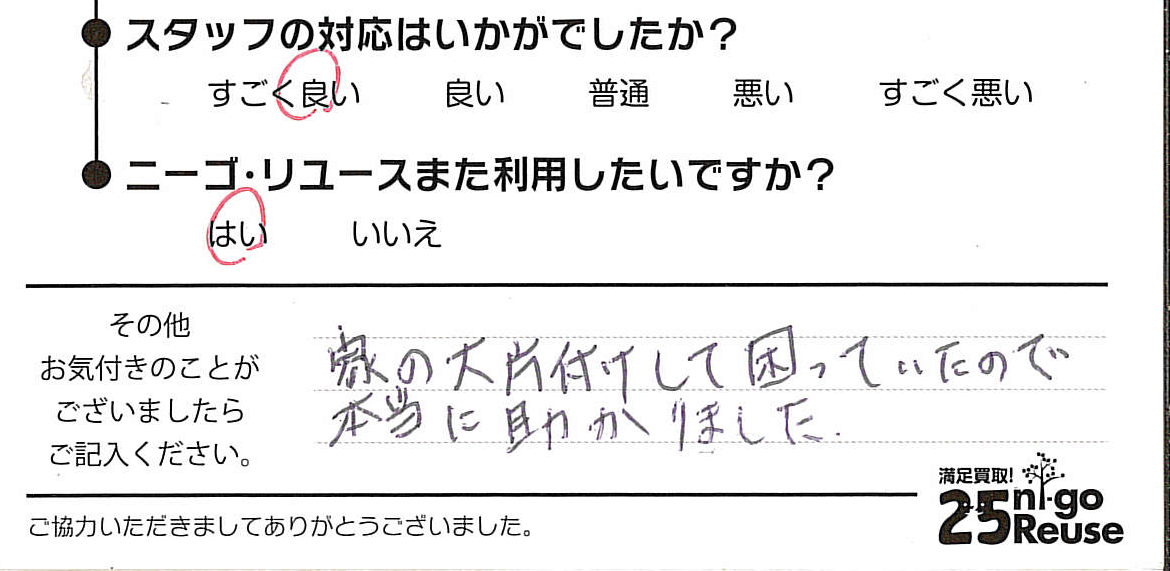 スタッフの対応はいかがでしたか？
すごく良い 良い 普通 悪い すごく悪い
ニーゴ・リユースまた利用したいですか？
はい いいえ
その他
お気付きのことが
ございましたら
ご記入ください。
家の大片付けして困っていたので
本当に助かりました.
ご協力いただきましてありがとうございました。
満足買取!
25 ni-go
Reuse